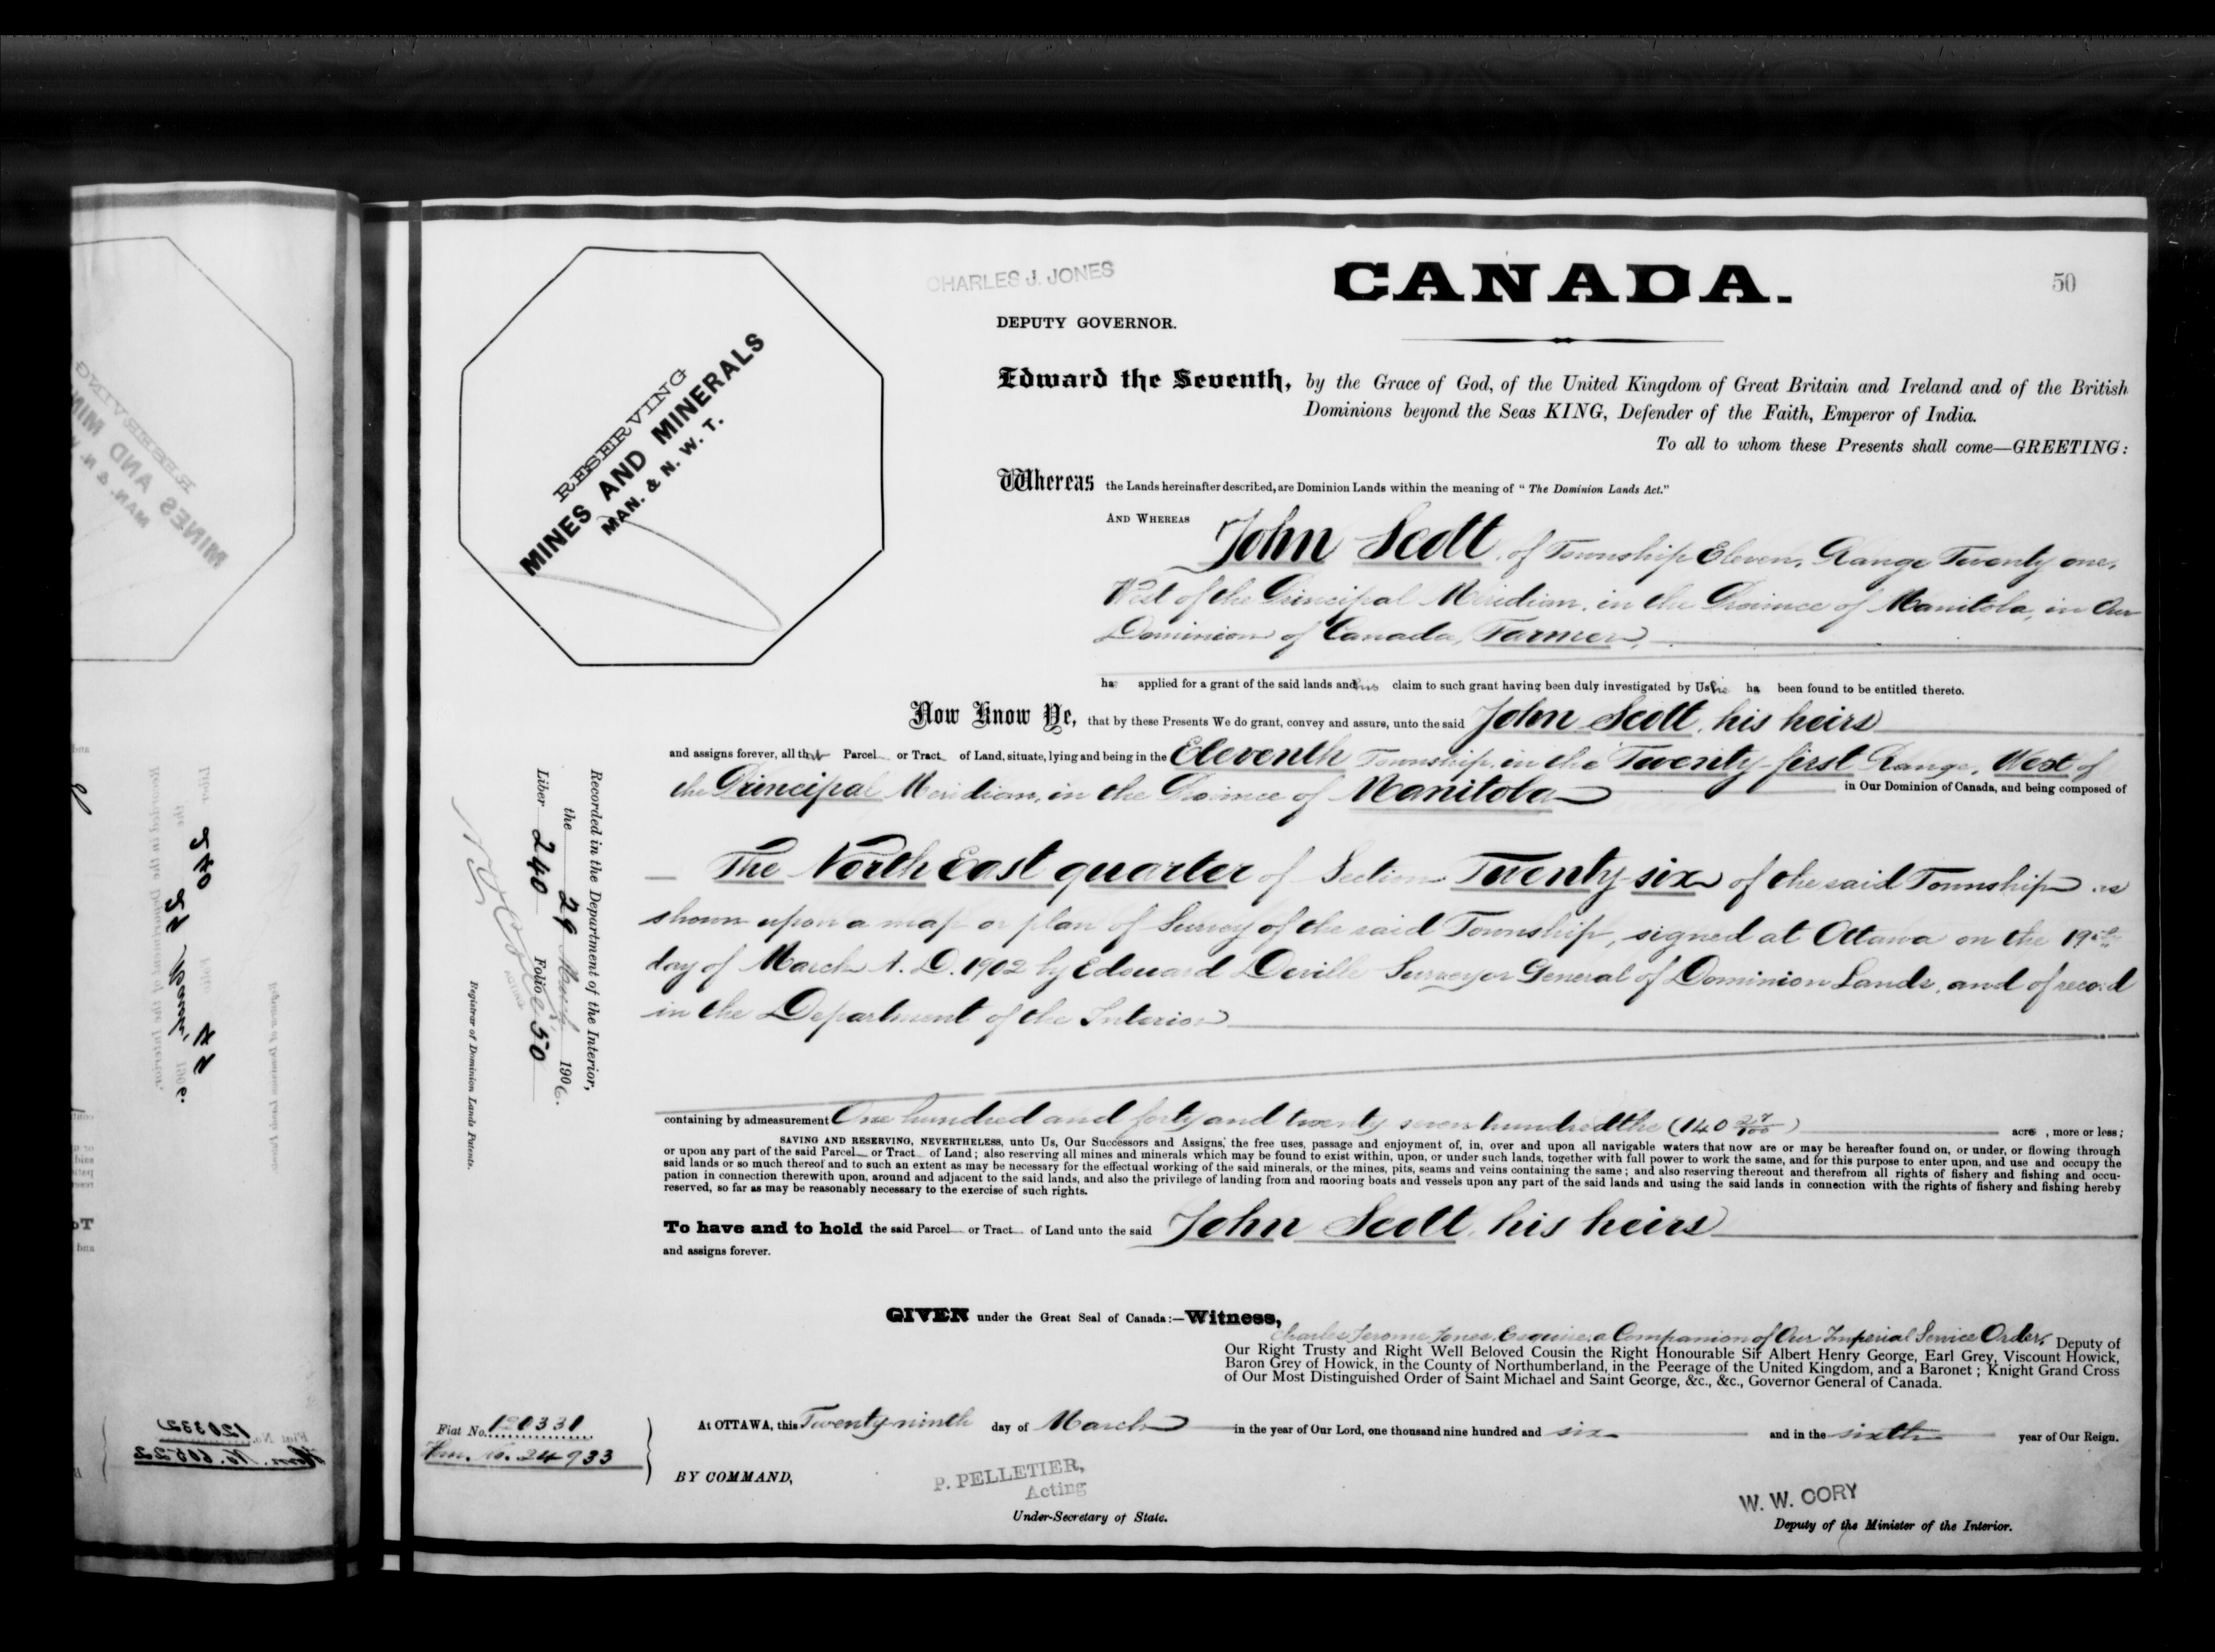 CHARLES J. JONES
CANADA.
50
DEPUTY GOVERNOR.
Edward the Seventh, by the Grace of God, of the United Kingdom of Great Britain and Ireland and of the British
Dominions beyond the Seas KING, Defender of the Faith, Emperor of India.
To all to whom these Presents shall come—GREETING:
RESERVING
MINES AND MINERALS
MAN. & N. W. T.
Whereas the Lands hereinafter described, are Dominion Lands within the meaning of "The Dominion Lands Act."
AND WHEREAS John Scott, of Township Eleven, Range Twenty one,
West of the Principal Meridian, in the Province of Manitoba, in Our
Dominion of Canada, Farmer,
has applied for a grant of the said lands and his claim to such grant having been duly investigated by Us he has been found to be entitled thereto.
Now Know Ye, that by these Presents We do grant, convey and assure, unto the said John Scott, his heirs
and assigns forever, all that Parcel or Tract of Land, situate, lying and being in the Eleventh Township, in the Twenty-first Range, West of
the Principal Meridian, in the Province of Manitoba in Our Dominion of Canada, and being composed of
The North East quarter of Section Twenty-six of the said Township as
shown upon a map or plan of Survey of the said Township, signed at Ottawa on the 19th
day of March A. D. 1902 by Edouard Deville Surveyor General of Dominion Lands, and of record
in the Department of the Interior
containing by admeasurement One hundred and forty and twenty seven hundredths (140 27/100) acres, more or less;
SAVING AND RESERVING, NEVERTHELESS, unto Us, Our Successors and Assigns, the free uses, passage and enjoyment of, in, over and upon all navigable waters that now are or may be hereafter found on, or under, or flowing through
or upon any part of the said Parcel or Tract of Land; also reserving all mines and minerals which may be found to exist within, upon, or under such lands, together with full power to work the same, and for this purpose to enter upon, and use and occupy the
said lands or so much thereof and to such an extent as may be necessary for the effectual working of the said minerals, or the mines, pits, seams and veins containing the same; and also reserving thereout and therefrom all rights of fishery and fishing and occu-
pation in connection therewith upon, around and adjacent to the said lands, and also the privilege of landing from and mooring boats and vessels upon any part of the said lands and using the said lands in connection with the rights of fishery and fishing hereby
reserved, so far as may be reasonably necessary to the exercise of such rights.
To have and to hold the said Parcel or Tract of Land unto the said John Scott, his heirs
and assigns forever.
GIVEN under the Great Seal of Canada:—Witness,
Charles Jerome Jones, Esquire, a Companion of Our Imperial Service Order, Deputy of
Our Right Trusty and Right Well Beloved Cousin the Right Honourable Sir Albert Henry George, Earl Grey, Viscount Howick,
Baron Grey of Howick, in the County of Northumberland, in the Peerage of the United Kingdom, and a Baronet; Knight Grand Cross
of Our Most Distinguished Order of Saint Michael and Saint George, &c., &c., Governor General of Canada.
At OTTAWA, this Twenty ninth day of March in the year of Our Lord, one thousand nine hundred and six and in the sixth year of Our Reign.
BY COMMAND,
P. PELLETIER,
Acting
Under-Secretary of State.
W. W. CORY
Deputy of the Minister of the Interior.
Recorded in the Department of the Interior,
the 29 March 1906.
Liber 240 Folio 50
Registrar of Dominion Lands Patents.
Fiat No. 120331
Hom. No. 24933